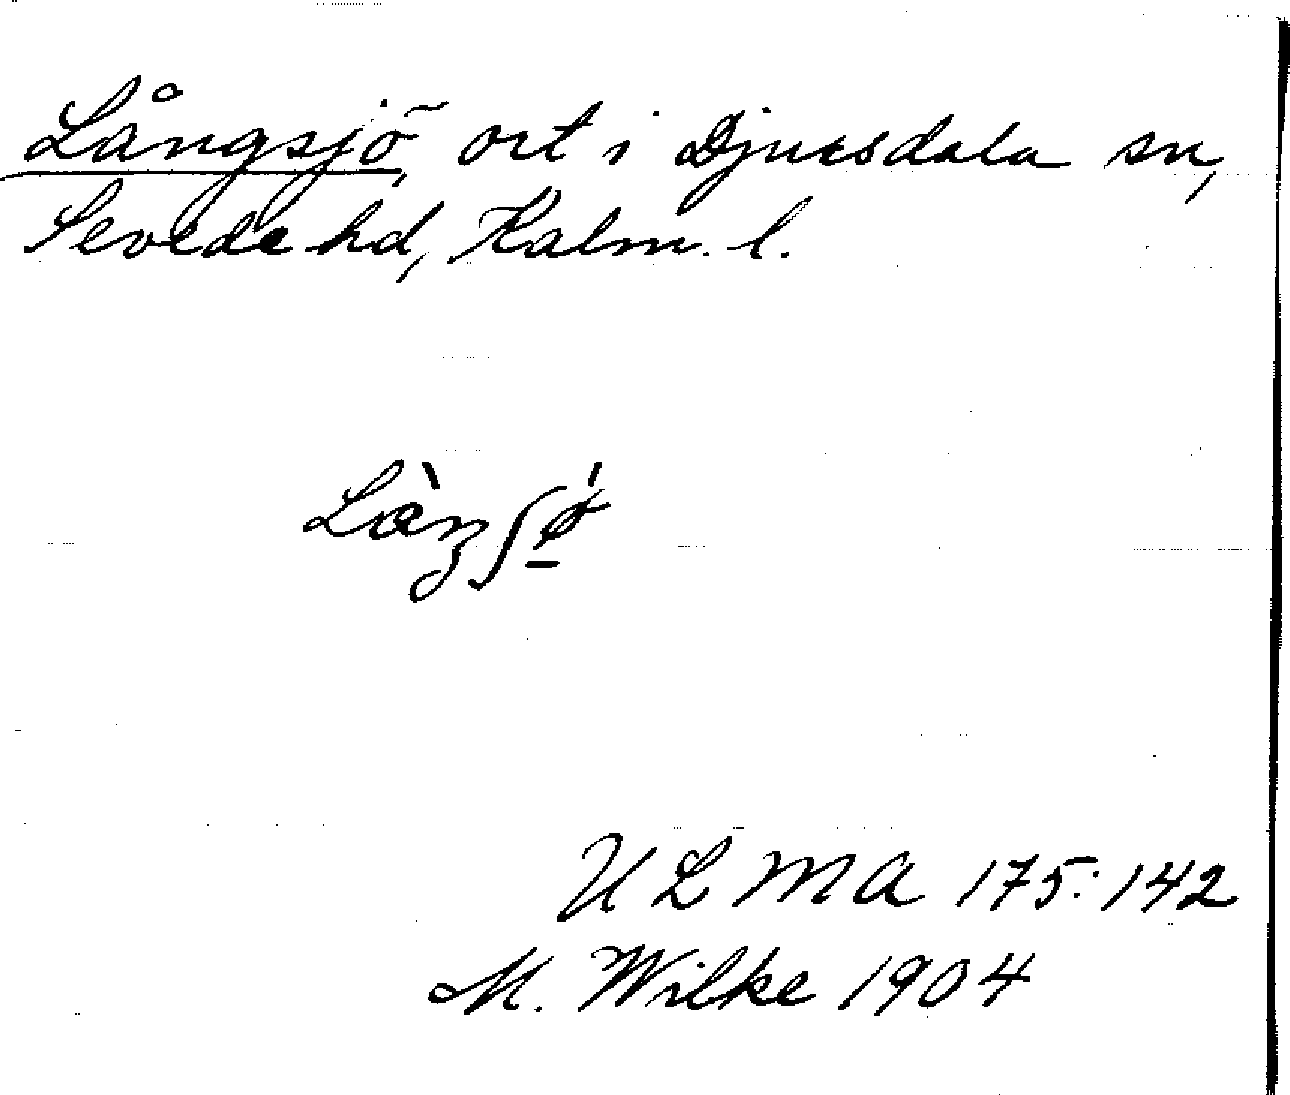 Långsjö, ort i Djursdala sn,
Sevede hd, Kalm. l.
ULMA 175:142
M. Wilke 1904